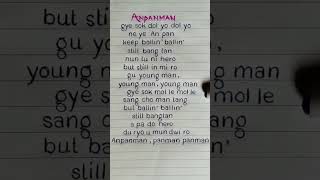 ANPANMAN
gye sok dol yo dol yo
ne ye An pan
keep ballin' ballin'
still bang tan
nun tu ni hero
but still in mi ro
gu young man,
young man, young man
gye sok mol le mol le
sang cho man tang
but ballin' ballin'
still bangtan
a pa do hero
du ryo u mun dwi ro
Anpanman, panman panman